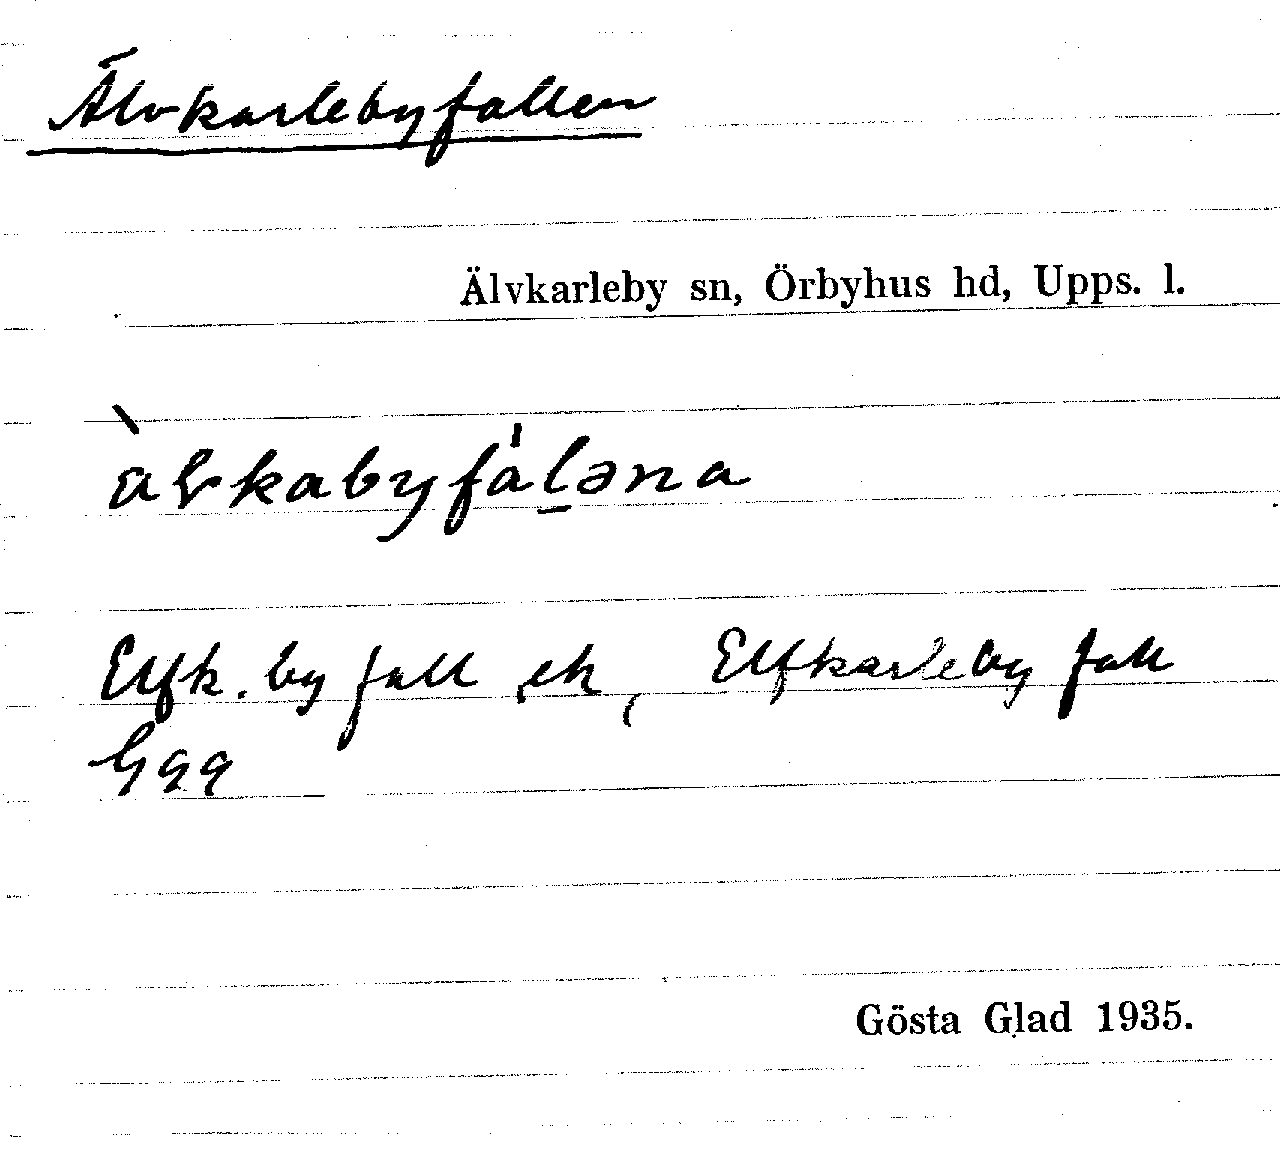 Älvkarlebyfallen
Älvkarleby sn, Örbyhus hd, Upps. l.
àlvkabyfa̍ḻəna
Elfk. by fall ek, Elfkarleby fall
Ggq
Gösta Glad 1935.